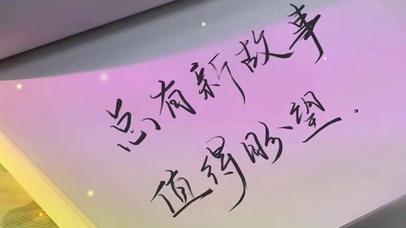 总有新故事
值得盼望.